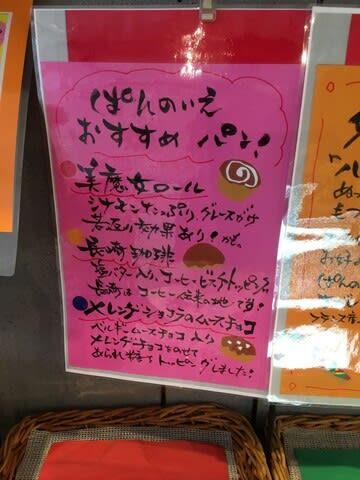 ぱんのいえ
おすすめ パン!
美魔女ロール
シナモンたっぷり、グレーズがけ
若返り効果あり!かも。
長崎珈琲
塩バター入り、コーヒービスケットトッピング
長崎はコーヒー伝来の地です!
メレンゲショコラのムースチョコ
ベルギームースチョコ入り
メレンゲチョコをのせて
あられ糖をトッピングしました!